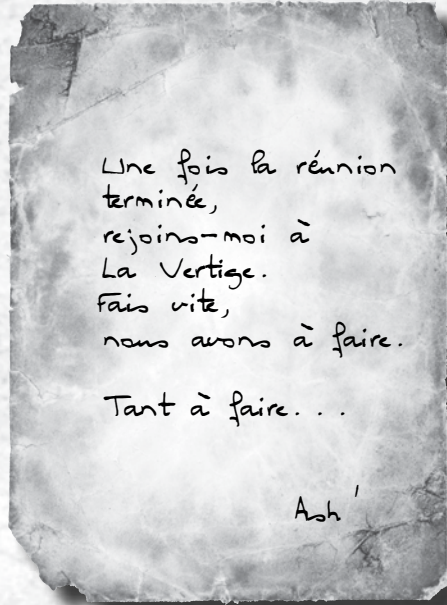 Une fois la réunion
terminée,
rejoins-moi à
La Vertige.
Fais vite,
nous avons à faire.
Tant à faire...
Ash'